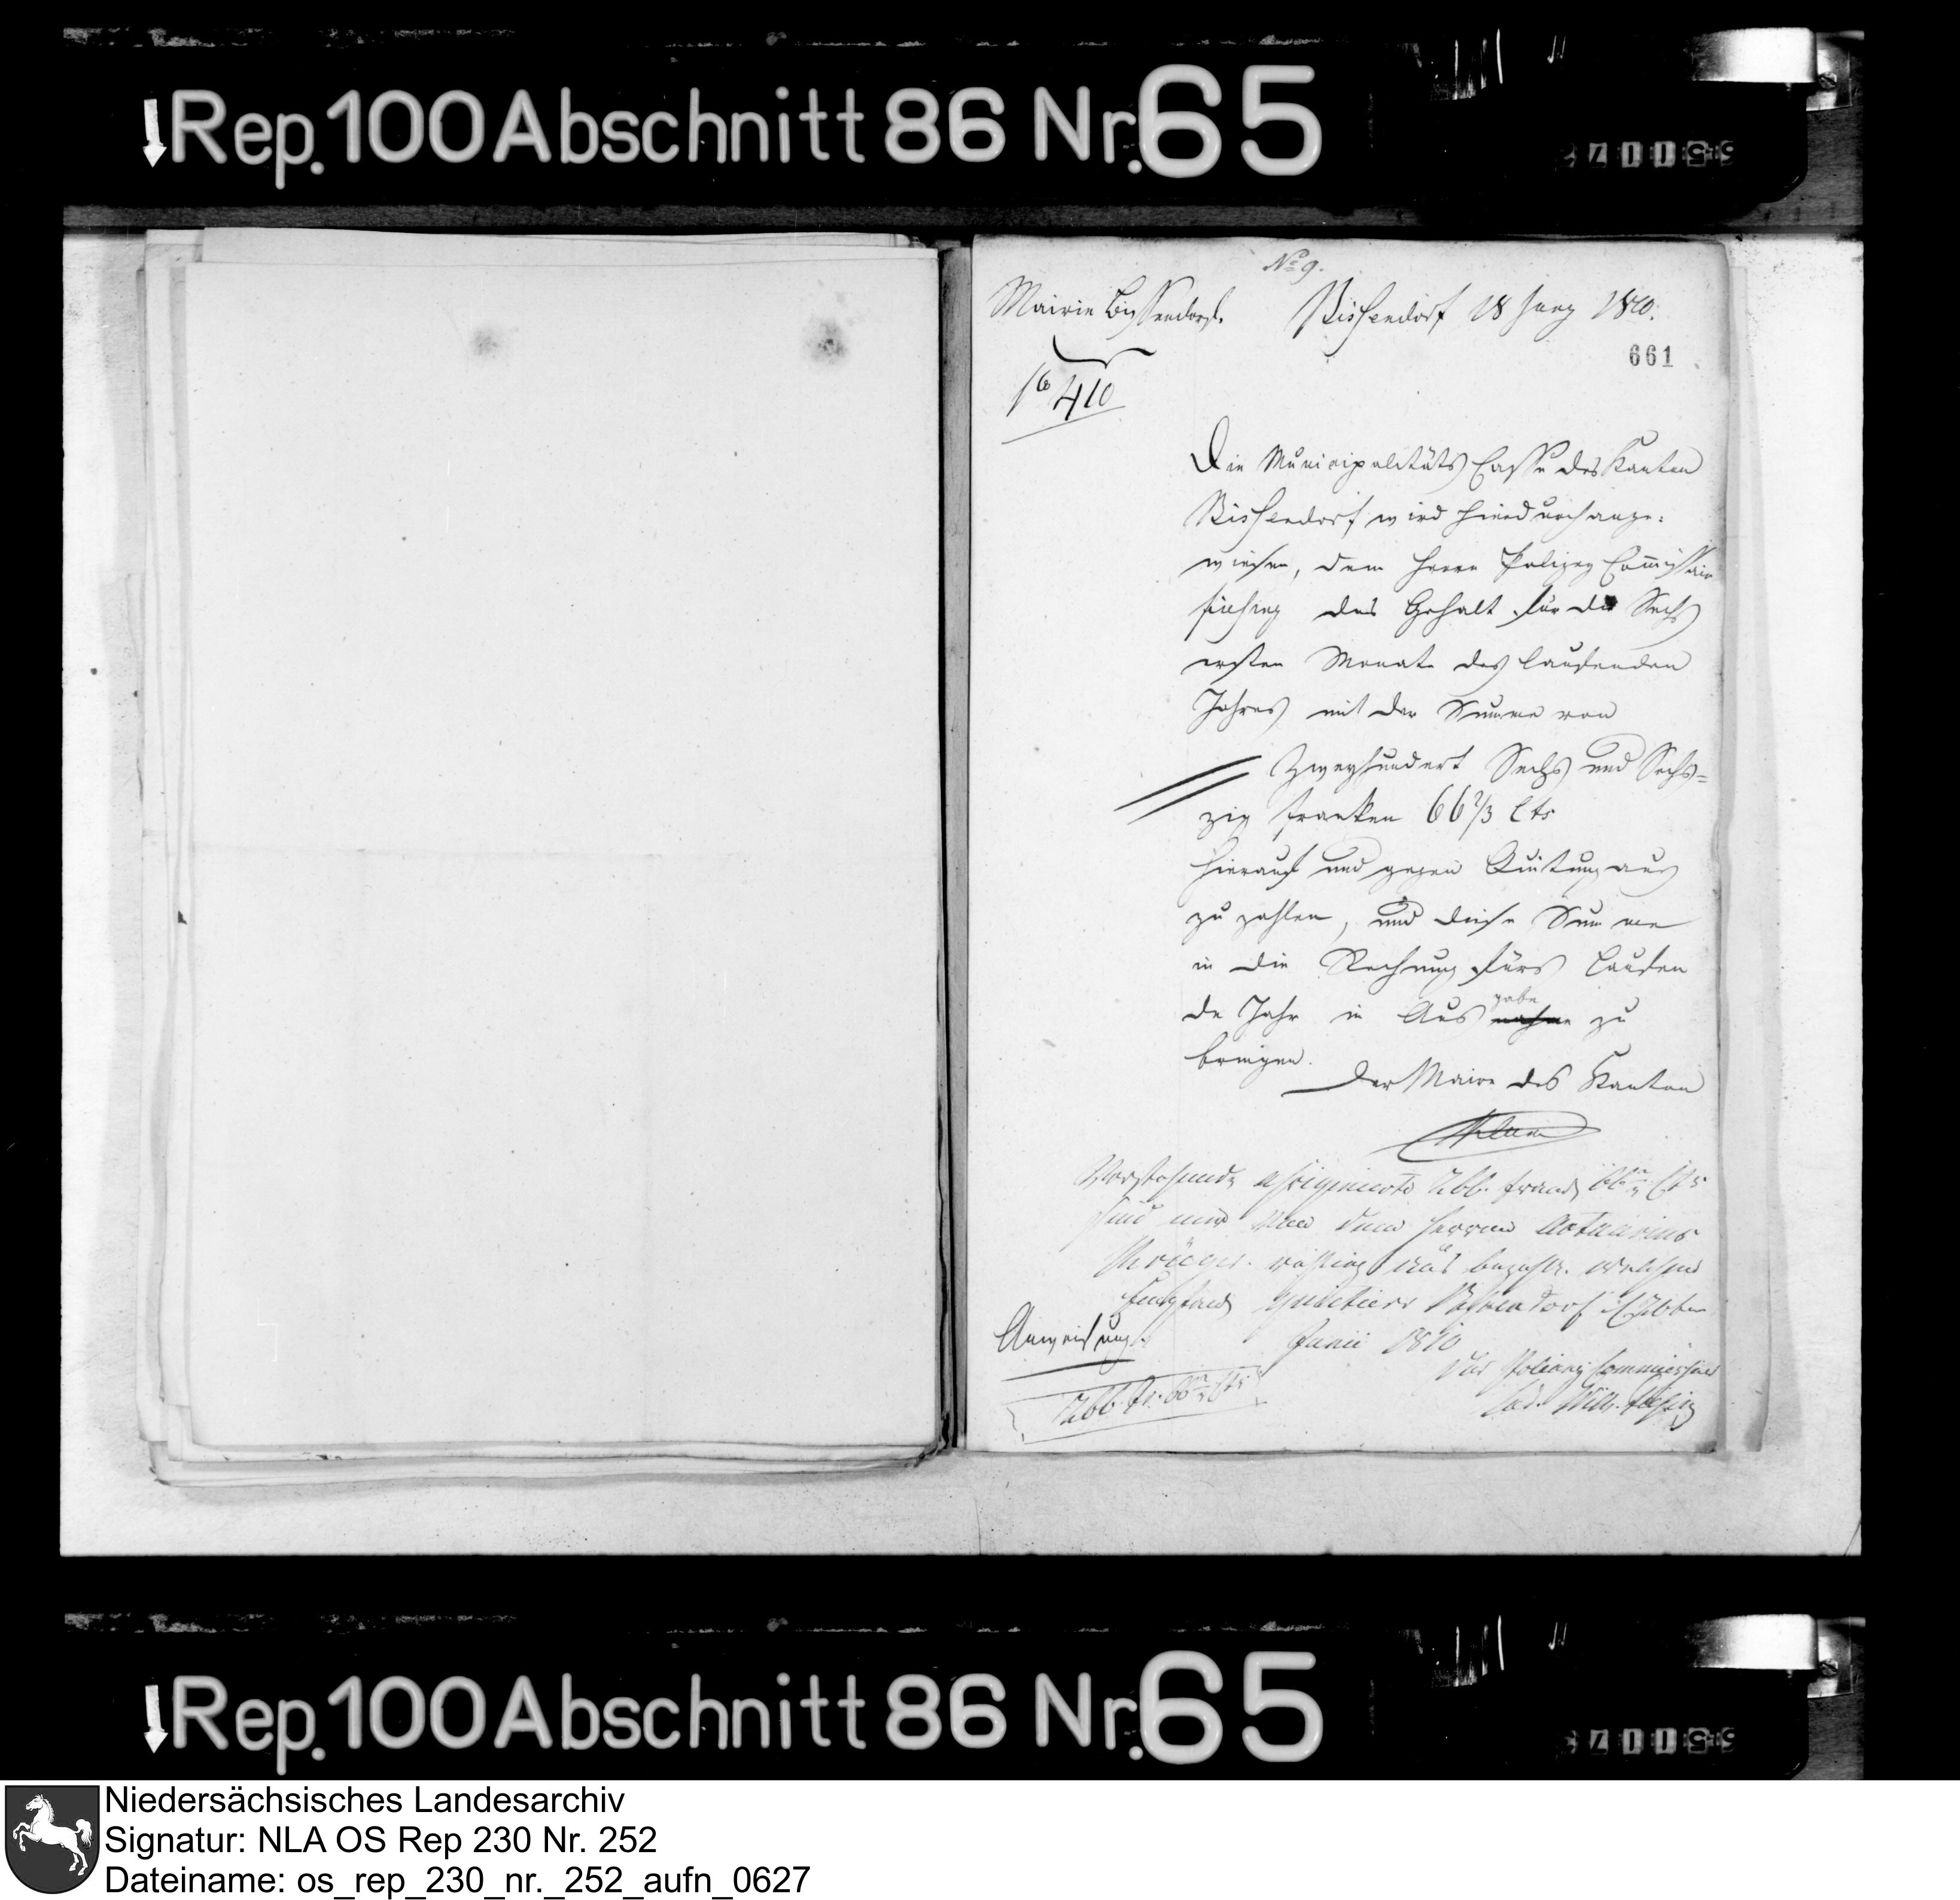 Rep. 100 Abschnitt 86 Nr. 65
No 9.
Mairie Bissendorf. Bissendorf 18 Juny 1810.
661
410
Die Municipalitäts Casse des Kanton
Bissendorf wird hierdurch ange-
wiesen, dem Herrn Polizey Commissair
das Gehalt für die Sechs
ersten Monate des laufenden
Jahres mit der Summe von
Zweyhundert Sechs und Sechs-
zig Franken 66 2/3 Cts
hierauf und gegen Quitung aus
zu zahlen, und diese Summe
in die Rechnung fürs laufen
de Jahr in Ausgabe zu
bringen.
Der Maire des Kanton
Vorstehende assignierte 266. Francs 66 2/3 Cts
sind mir von dem Herren Actuarius
Kröger richtig aus bezahlt. welchen
Empfang quittiere Bissendorf
Anweisung.
Junii 1810
Der Policey Commissair
266 Fr. 66 2/3 Cts
Rep. 100 Abschnitt 86 Nr. 65
Niedersächsisches Landesarchiv
Signatur: NLA OS Rep 230 Nr. 252
Dateiname: os_rep_230_nr._252_aufn_0627